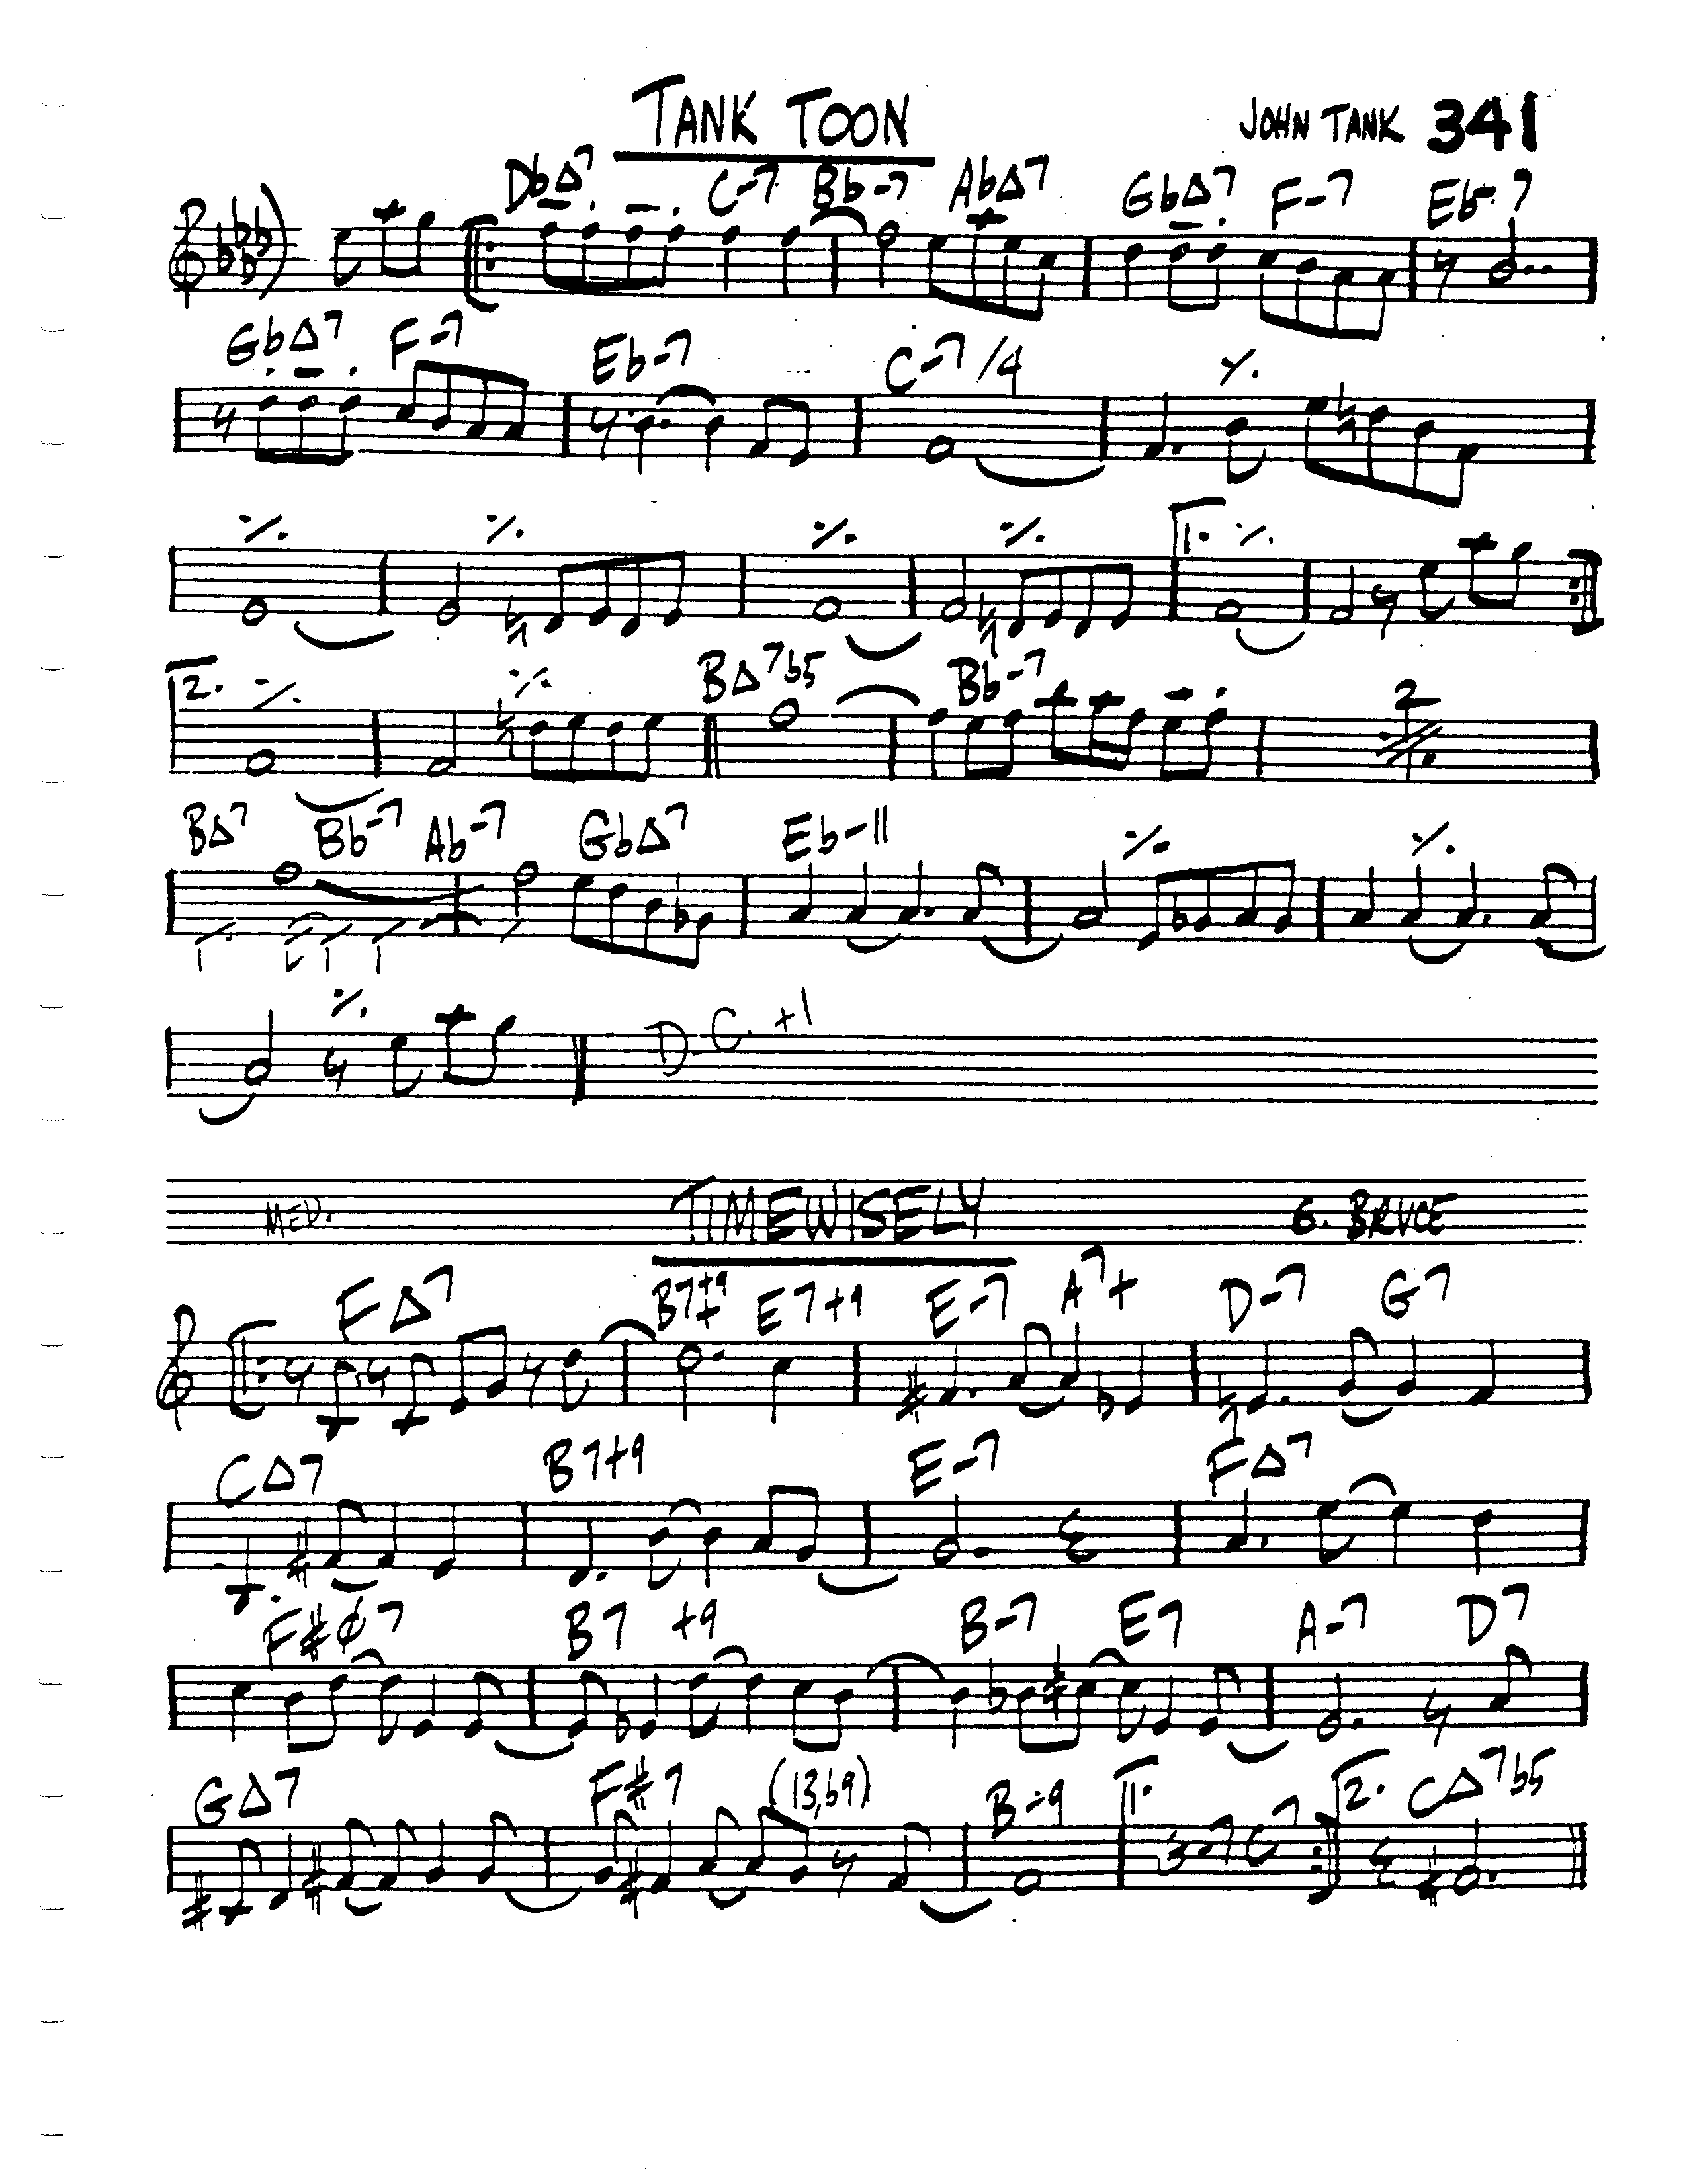 TANK TOON
JOHN TANK 341
Db△7 C-7 Bb-7 Ab△7 Gb△7 F-7 Eb-7
Gb△7 F-7 Eb-7 C-7/4
1.
2. B△7b5 Bb-7 2
B△7 Bb-7 Ab-7 Gb△7 Eb-11
D.C. +1
MED. TIMEWISELY G. BRUCE
F△7 B7+9+ E7+9 E-7 A7+ D-7 G7
C△7 B7+9 E-7 F△7
F#ø7 B7 +9 B-7 E7 A-7 D7
G△7 F#7 (13,b9) B-9 1. 2. C△7b5